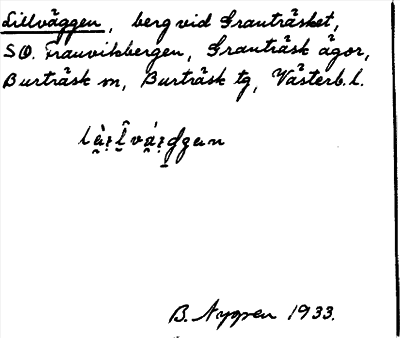 Lillväggen, berg vid Granträsket,
SO. Granviksbergen, Granträsk ägor,
Burträsk sn, Burträsk tg, Västerb. l.
B. Nygren 1933.